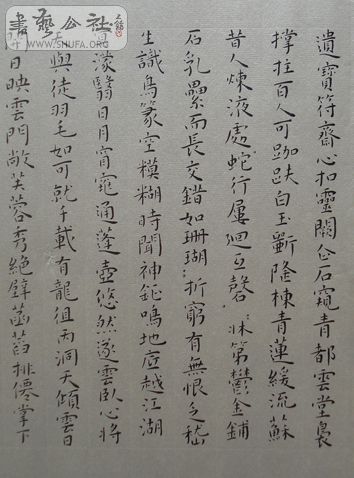 遺寶符齋心扣靈關企石窺青都雲堂裊
撑拄百人可跏趺白玉嶄隆棟青蓮緩流蘇
昔人煉液處蛇行屢迴互磬牀第鬱金鋪
石乳纍而長交錯如珊瑚折窮有無恨乏嵇
生識鳥篆空糢糊時聞神鉦鳴地底越江湖
濛翳日月窅竉通蓬壺悠然遂雲臥心將
與徒羽毛如可就千載有龍徂丙洞天傾雲日
日映雲門敞芙蓉秀絕壁菡萏挑僊掌下
書藝公社
www.SHUFA.ORG